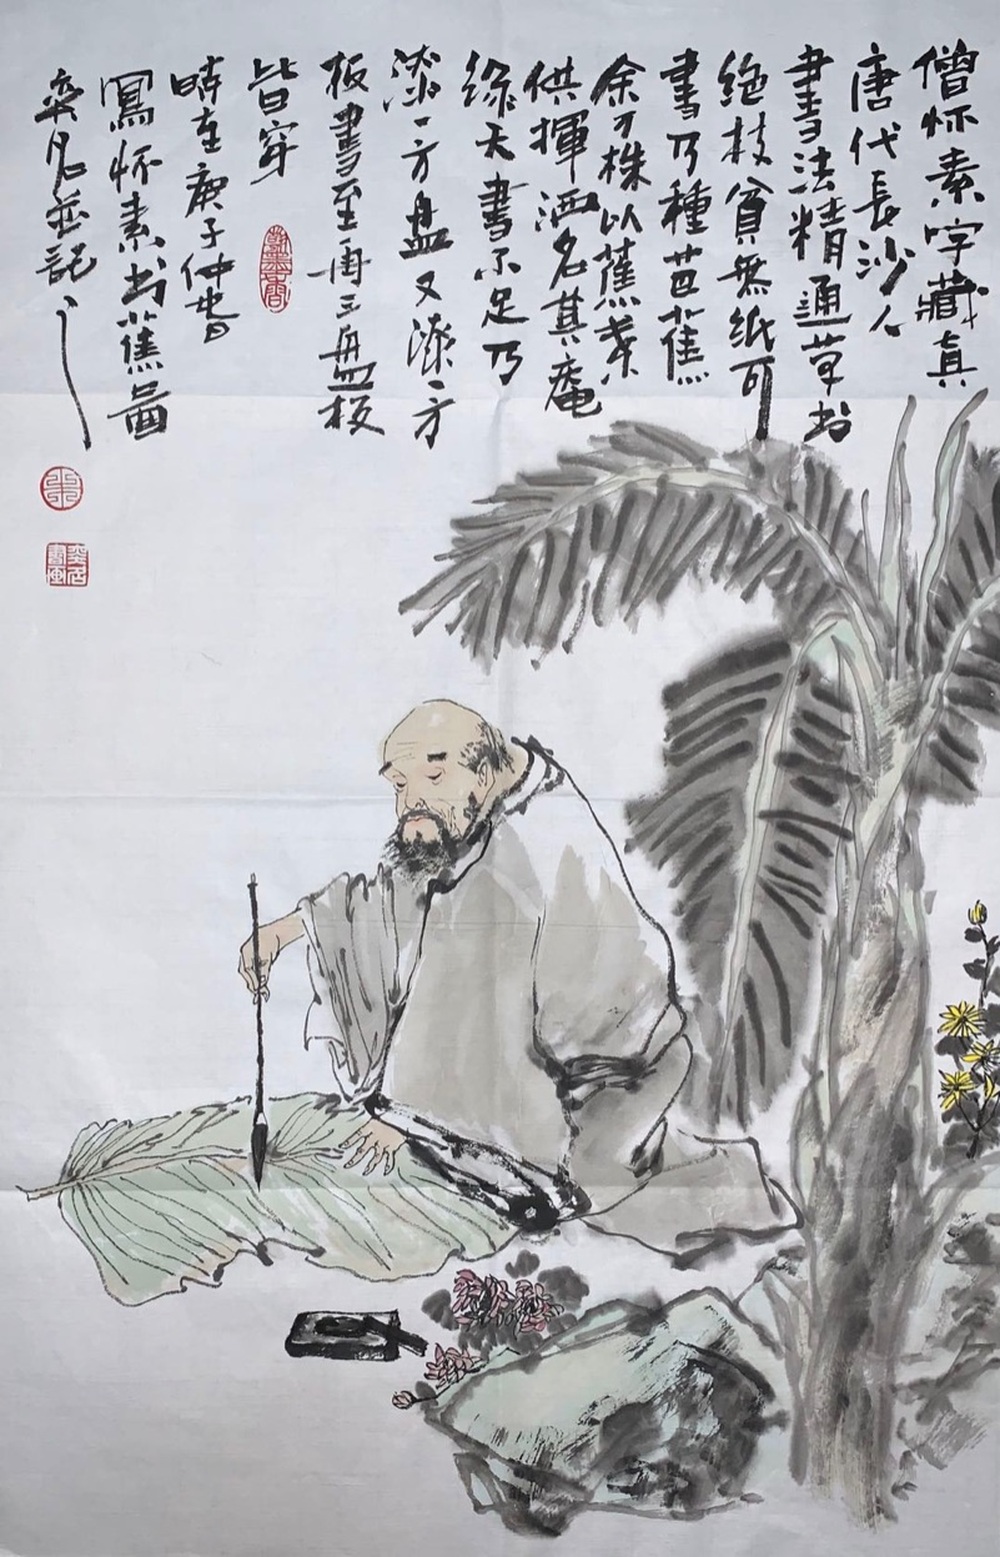 僧怀素字藏真
唐代長沙人
書法精通草书
绝枝貧無紙可
書乃種芭蕉
余万株以蕉葉
供揮洒名其庵
绿天書不足乃
漆一方盘又漆一方
板書至再三盘板
皆穿
時在庚子仲春
寫怀素书蕉圖
奕名並記